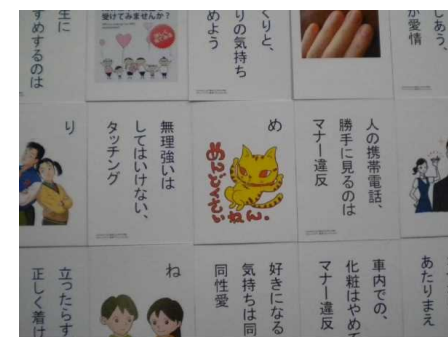 生に
すめするのは
受けてみませんか？
くりと、
りの気持ち
めよう
しあう、
が愛情
り
無理強いは
してはいけない、
タッチング
め
めんどくさいねん。
人の携帯電話、
勝手に見るのは
マナー違反
立ったらす
正しく着け
ね
好きになる
気持ちは同
同性愛
車内での、
化粧はやめて
マナー違反
あたりまえ